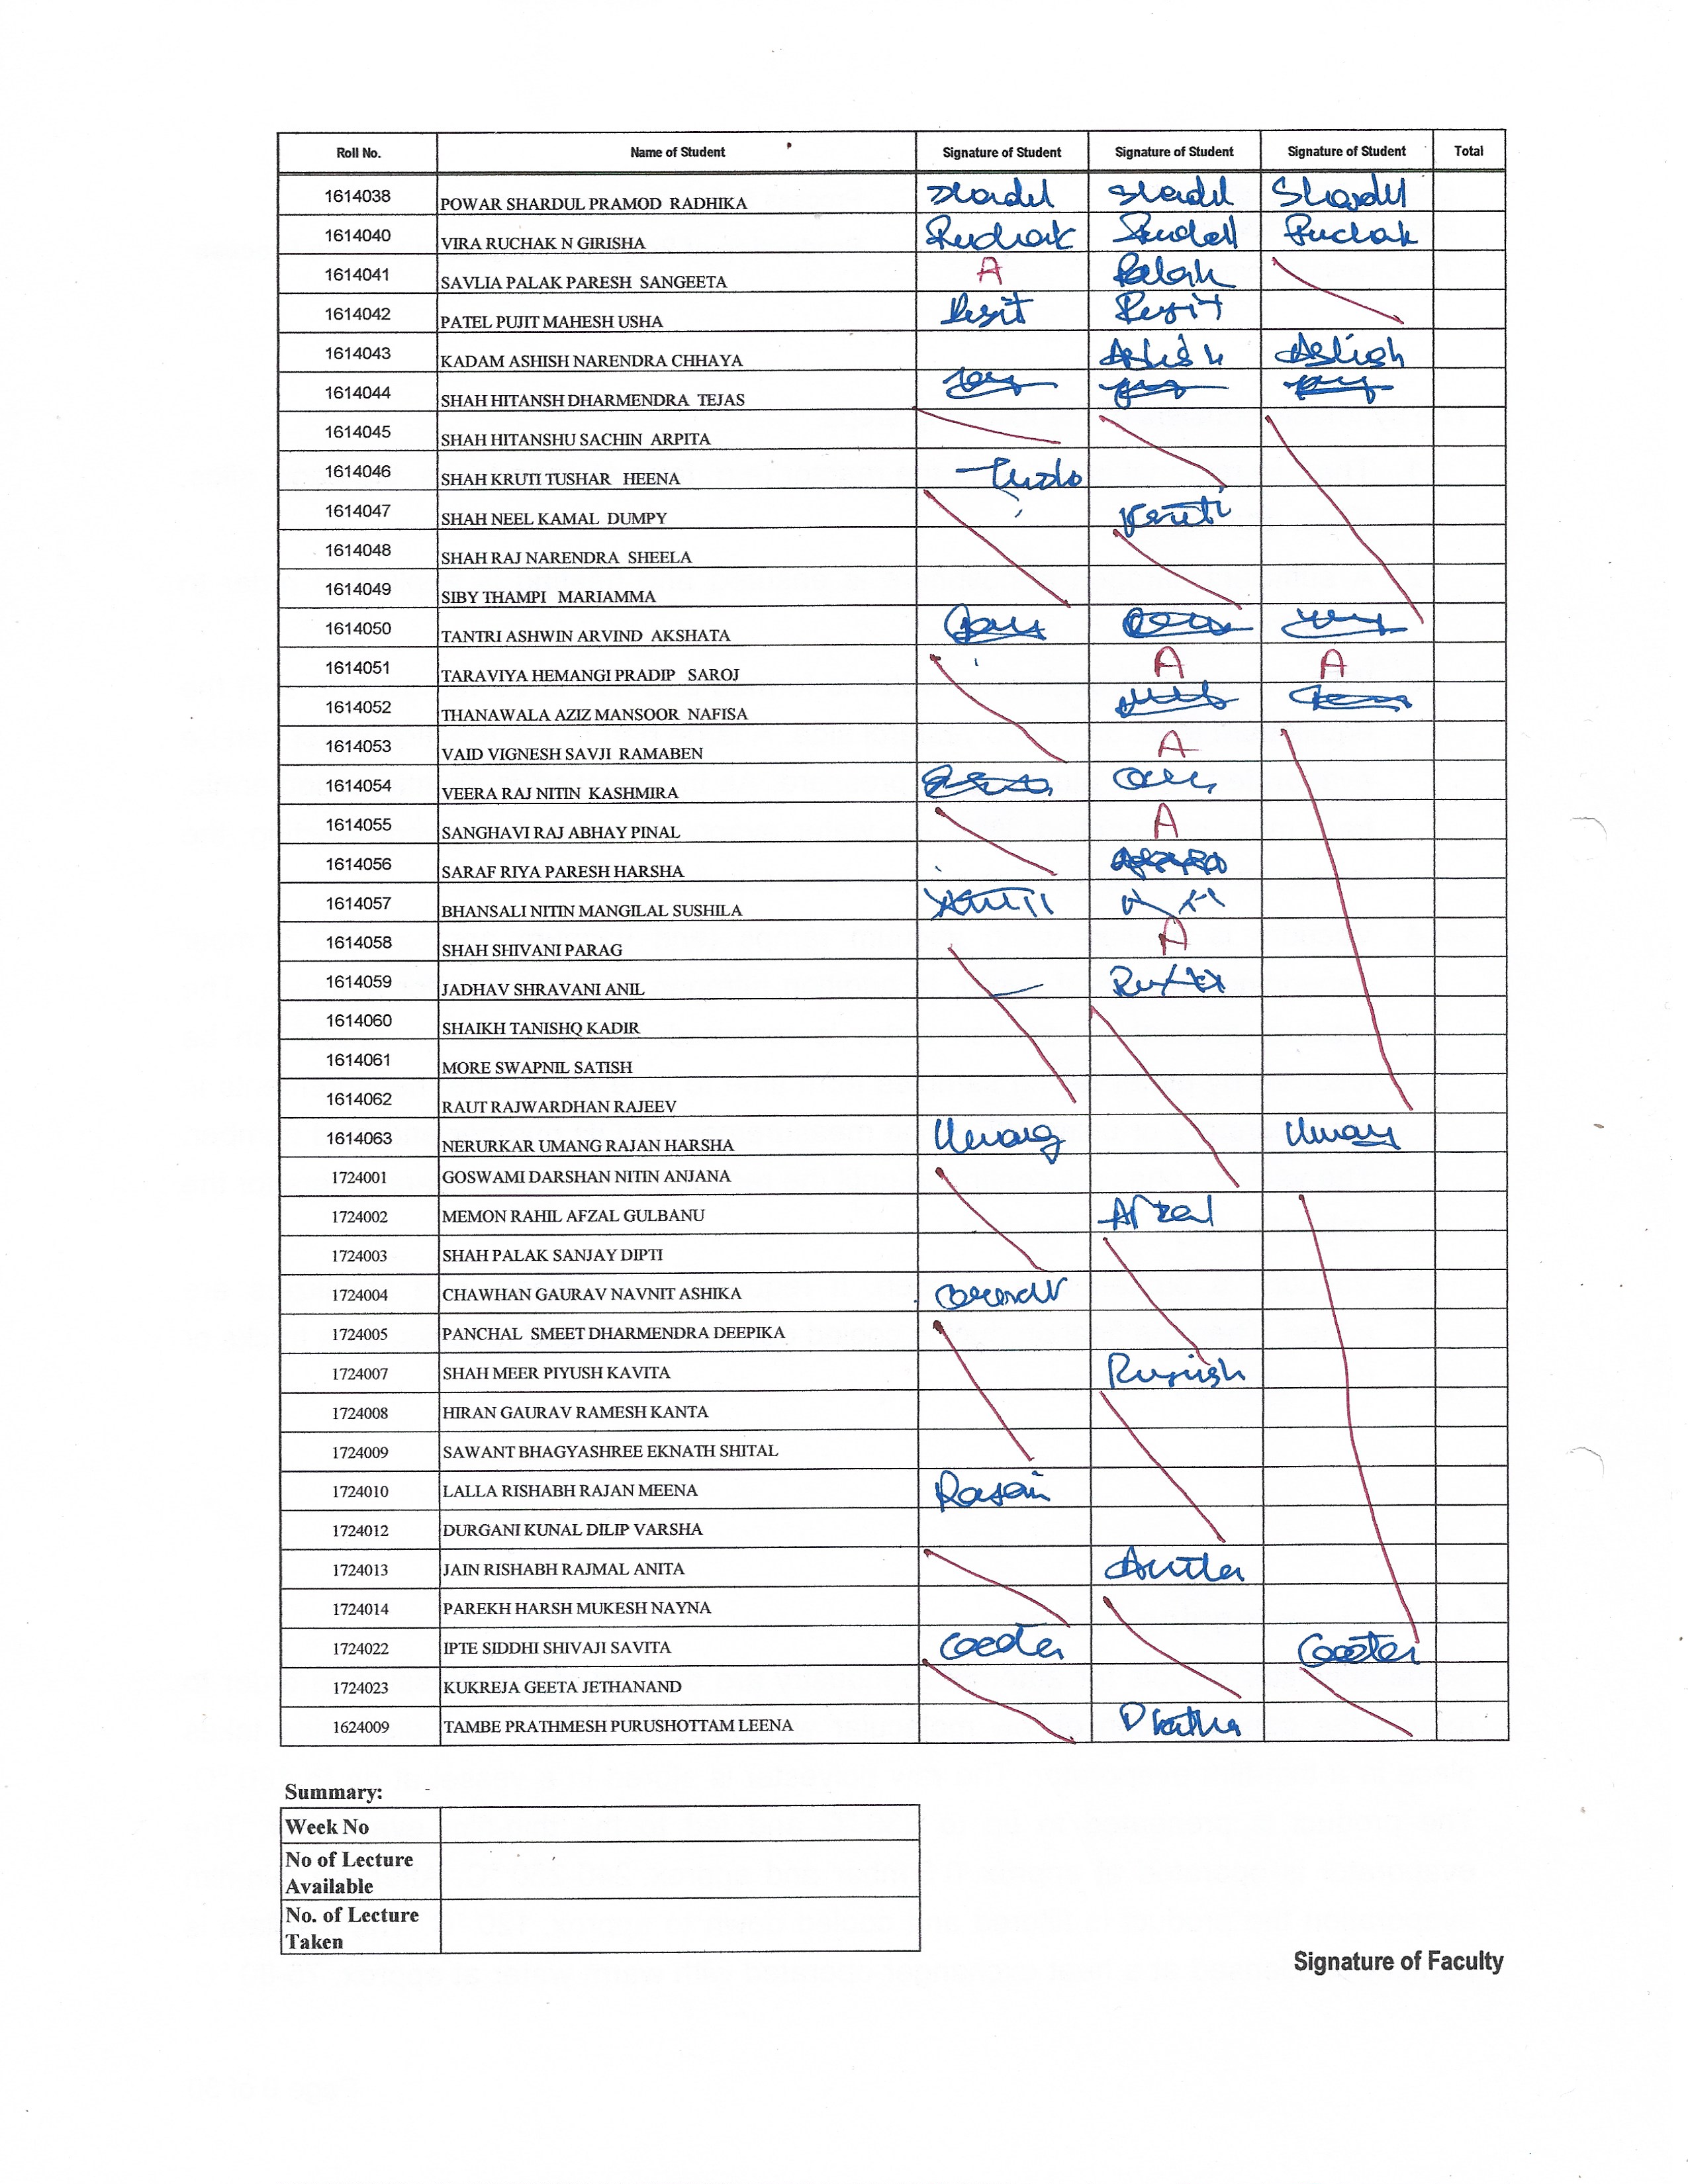 Roll No. Name of Student Signature of Student Signature of Student Signature of Student Total
1614038 POWAR SHARDUL PRAMOD RADHIKA Shardul
1614040 VIRA RUCHAK N GIRISHA Ruchak Ruchak
1614041 SAVLIA PALAK PARESH SANGEETA A Palak
1614042 PATEL PUJIT MAHESH USHA Pujit Pujit
1614043 KADAM ASHISH NARENDRA CHHAYA Ashish Ashish
1614044 SHAH HITANSH DHARMENDRA TEJAS
1614045 SHAH HITANSHU SACHIN ARPITA
1614046 SHAH KRUTI TUSHAR HEENA
1614047 SHAH NEEL KAMAL DUMPY Kruti
1614048 SHAH RAJ NARENDRA SHEELA
1614049 SIBY THAMPI MARIAMMA
1614050 TANTRI ASHWIN ARVIND AKSHATA
1614051 TARAVIYA HEMANGI PRADIP SAROJ A A
1614052 THANAWALA AZIZ MANSOOR NAFISA
1614053 VAID VIGNESH SAVJI RAMABEN A
1614054 VEERA RAJ NITIN KASHMIRA
1614055 SANGHAVI RAJ ABHAY PINAL A
1614056 SARAF RIYA PARESH HARSHA
1614057 BHANSALI NITIN MANGILAL SUSHILA
1614058 SHAH SHIVANI PARAG A
1614059 JADHAV SHRAVANI ANIL
1614060 SHAIKH TANISHQ KADIR
1614061 MORE SWAPNIL SATISH
1614062 RAUT RAJWARDHAN RAJEEV
1614063 NERURKAR UMANG RAJAN HARSHA Umang Umang
1724001 GOSWAMI DARSHAN NITIN ANJANA
1724002 MEMON RAHIL AFZAL GULBANU Afzal
1724003 SHAH PALAK SANJAY DIPTI
1724004 CHAWHAN GAURAV NAVNIT ASHIKA
1724005 PANCHAL SMEET DHARMENDRA DEEPIKA
1724007 SHAH MEER PIYUSH KAVITA
1724008 HIRAN GAURAV RAMESH KANTA
1724009 SAWANT BHAGYASHREE EKNATH SHITAL
1724010 LALLA RISHABH RAJAN MEENA
1724012 DURGANI KUNAL DILIP VARSHA
1724013 JAIN RISHABH RAJMAL ANITA
1724014 PAREKH HARSH MUKESH NAYNA
1724022 IPTE SIDDHI SHIVAJI SAVITA
1724023 KUKREJA GEETA JETHANAND
1624009 TAMBE PRATHMESH PURUSHOTTAM LEENA
Summary:
Week No
No of Lecture
Available
No. of Lecture
Taken
Signature of Faculty